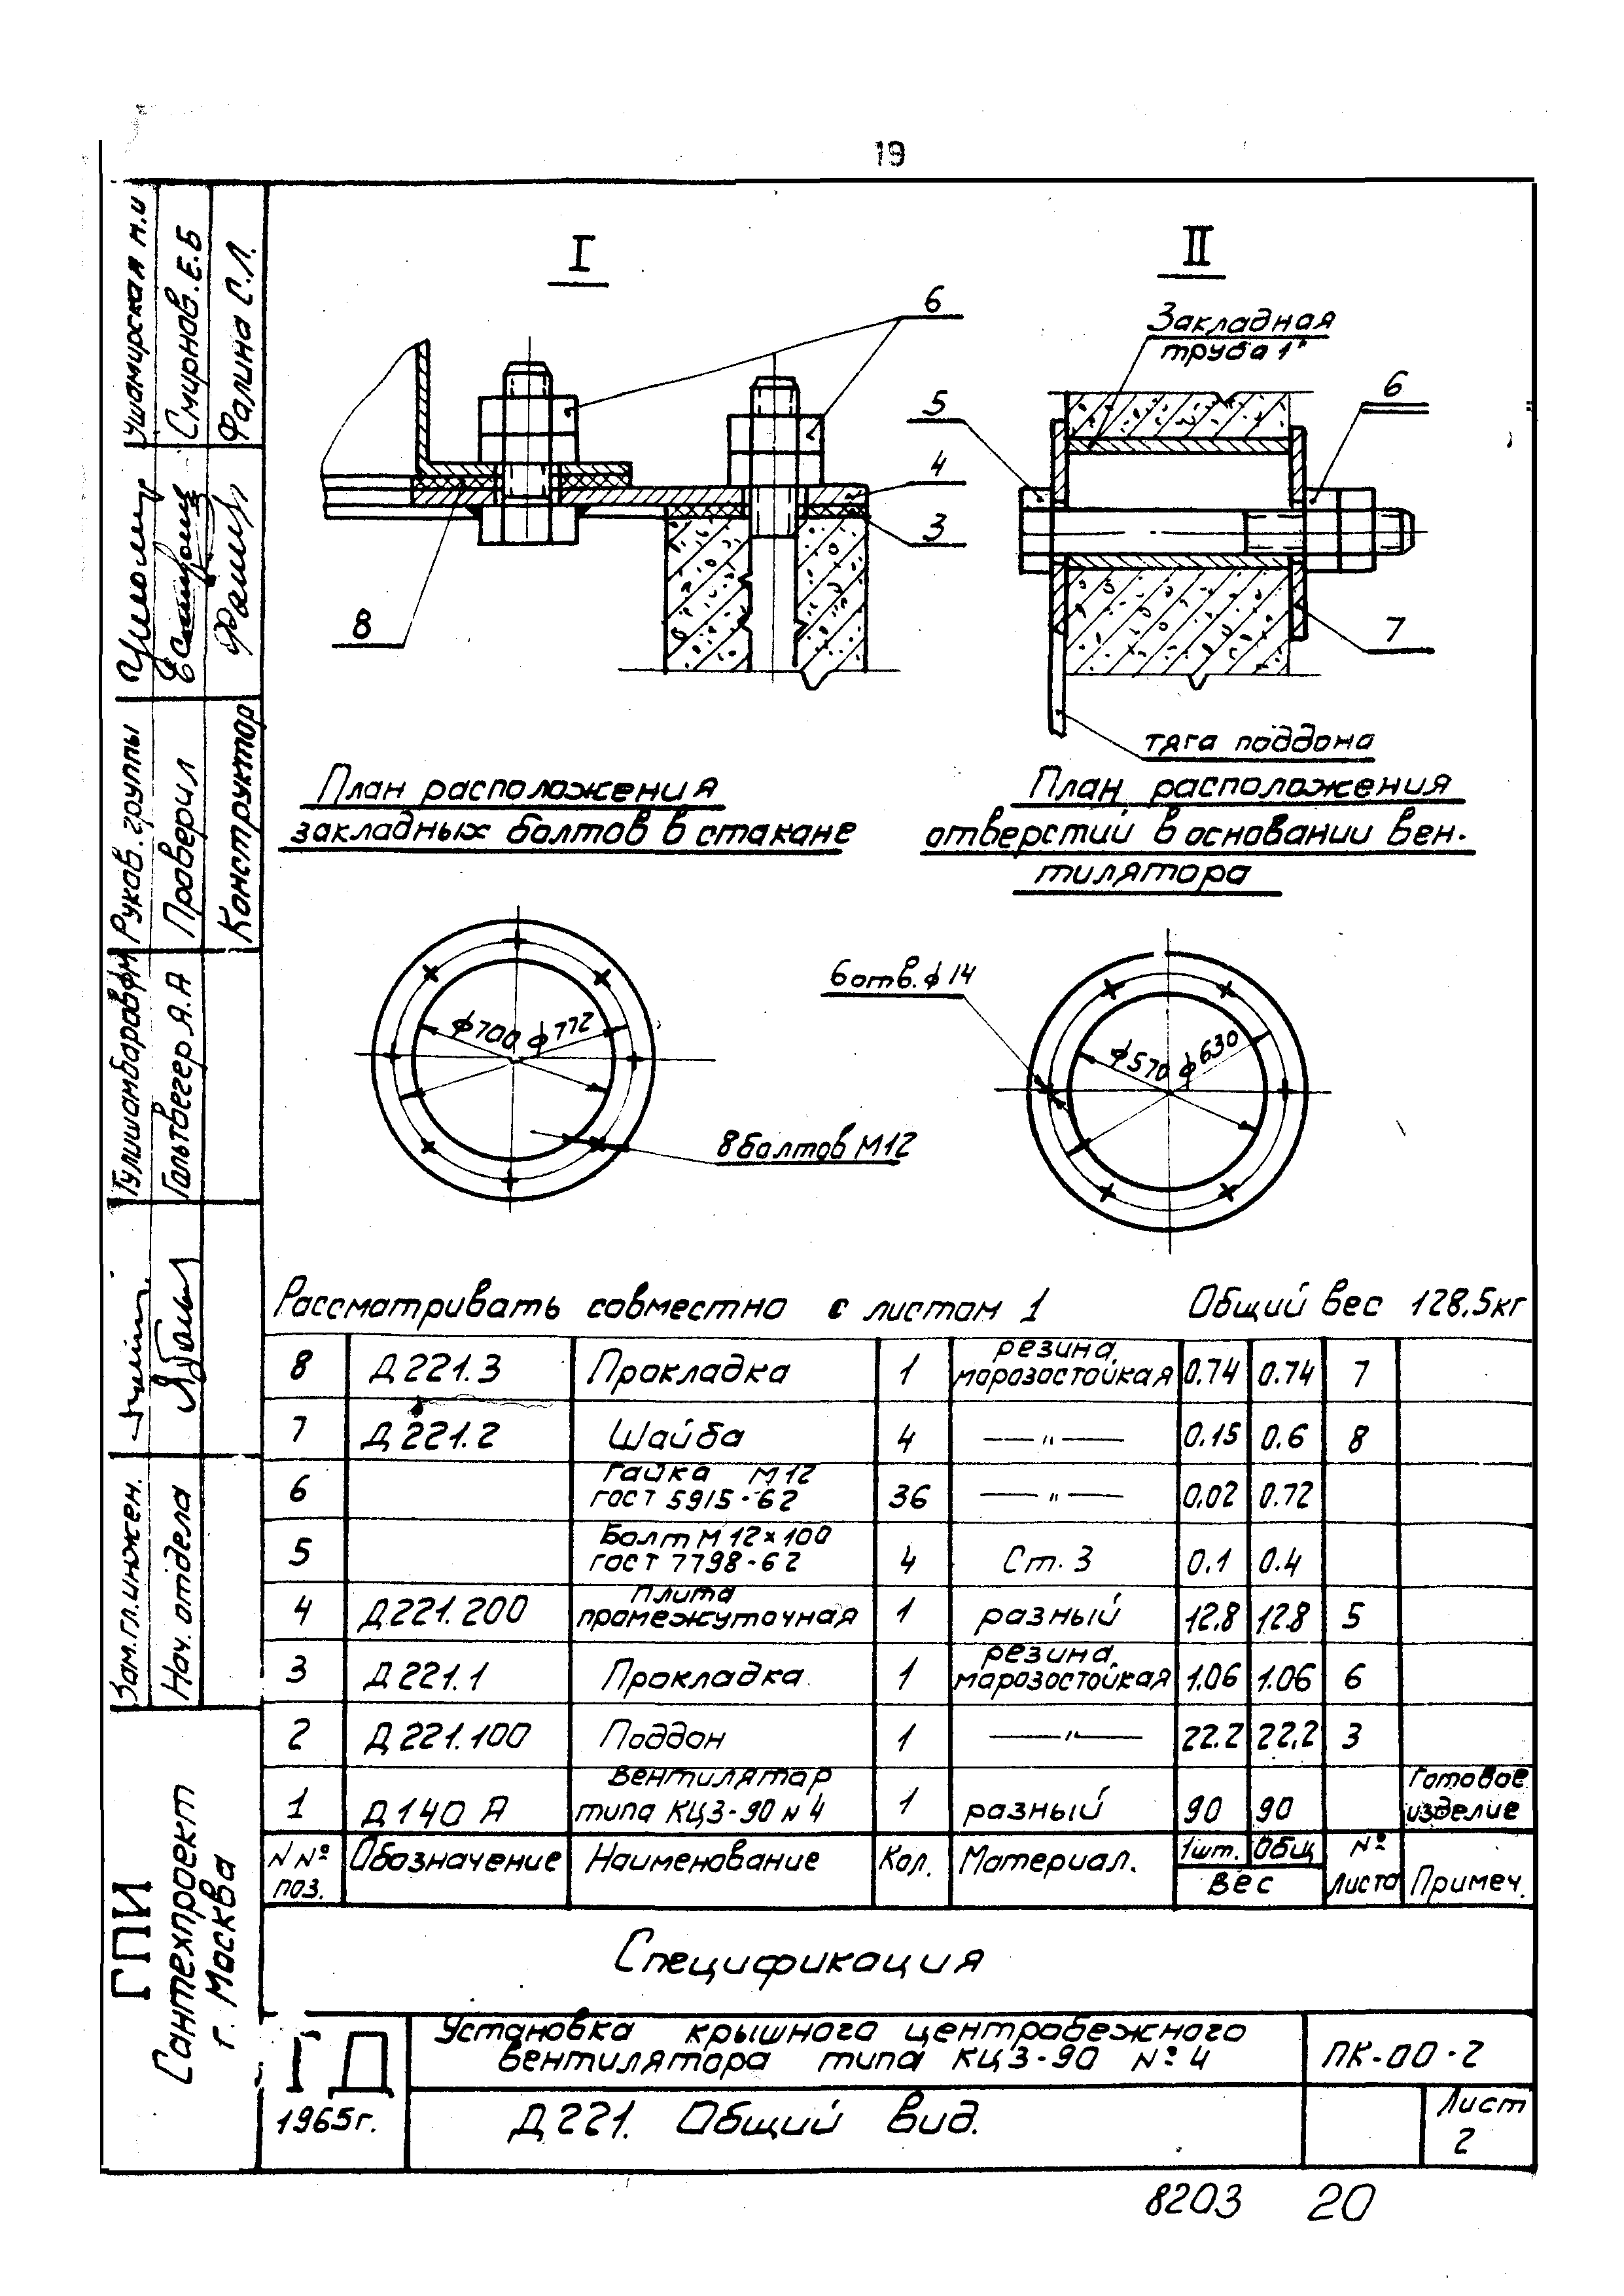 19
I
II
6
Закладная
труба 1"
5
6
4
3
8
7
тяга поддона
План расположения
закладных болтов в стакане
План расположения
отверстий в основании вен-
тилятора
ф700 ф772
8 болтов М12
6 отв. ф 14
ф570 ф630
Рассматривать совместно с листом 1
Общий вес 128,5кг
8 Д 221.3 Прокладка 1 резина морозостойкая 0.74 0.74 7
7 Д 221.2 Шайба 4 —"— 0.15 0.6 8
6 Гайка М12 ГОСТ 5915-62 36 —"— 0.02 0.72
5 Болт М 12×100 ГОСТ 7798-62 4 Ст. 3 0.1 0.4
4 Д 221.200 Плита промежуточная 1 разный 12.8 12.8 5
3 Д 221.1 Прокладка 1 резина морозостойкая 1.06 1.06 6
2 Д 221.100 Поддон 1 —"— 22.2 22.2 3
1 Д 140 А Вентилятор типа КЦ3-90 N 4 1 разный 90 90 Готовое изделие
N Nº поз. Обозначение Наименование Кол. Материал. 1шт. Общ Вес Nº листа Примеч.
Спецификация
ГД
1965г.
Установка крышного центробежного
вентилятора типа КЦ3-90 Nº 4
ПК-00-2
Д 221. Общий вид.
Лист
2
8203 20
ГПИ
Сантехпроект
г. Москва
Зам.гл.инжен.
Нач. отдела
Гальтвегер А.А
Руков. группы
Проверил
Конструктор
Смирнов.Е.Б
Фалина С.Л.